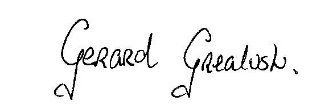 Gerard Grealish.